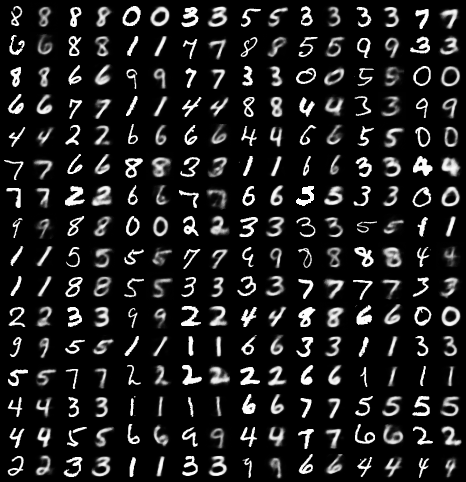 8 8 8 8 0 0 3 3 5 5 3 3 3 3 7 7
6 6 8 8 1 1 7 7 8 8 5 5 9 9 3 3
8 8 6 6 9 9 7 7 3 3 0 0 5 5 0 0
6 6 7 7 1 1 4 4 8 8 4 4 3 3 9 9
4 4 2 2 6 6 6 6 4 4 6 6 5 5 0 0
7 7 6 6 8 8 3 3 1 1 6 6 3 3 4 4
7 7 2 2 6 6 7 7 6 6 5 5 3 3 0 0
9 9 8 8 0 0 2 2 3 3 3 3 5 5 1 1
1 1 5 5 5 5 7 7 9 9 8 8 8 8 4 4
1 1 8 8 5 5 3 3 3 3 7 7 7 7 3 3
2 2 3 3 9 9 2 2 4 4 8 8 6 6 0 0
9 9 5 5 1 1 1 1 6 6 3 3 1 1 3 3
5 5 7 7 2 2 2 2 2 2 6 6 1 1 1 1
4 4 3 3 1 1 1 1 6 6 7 7 5 5 5 5
4 4 5 5 6 6 9 9 4 4 7 7 6 6 2 2
2 2 3 3 1 1 3 3 9 9 6 6 4 4 4 4